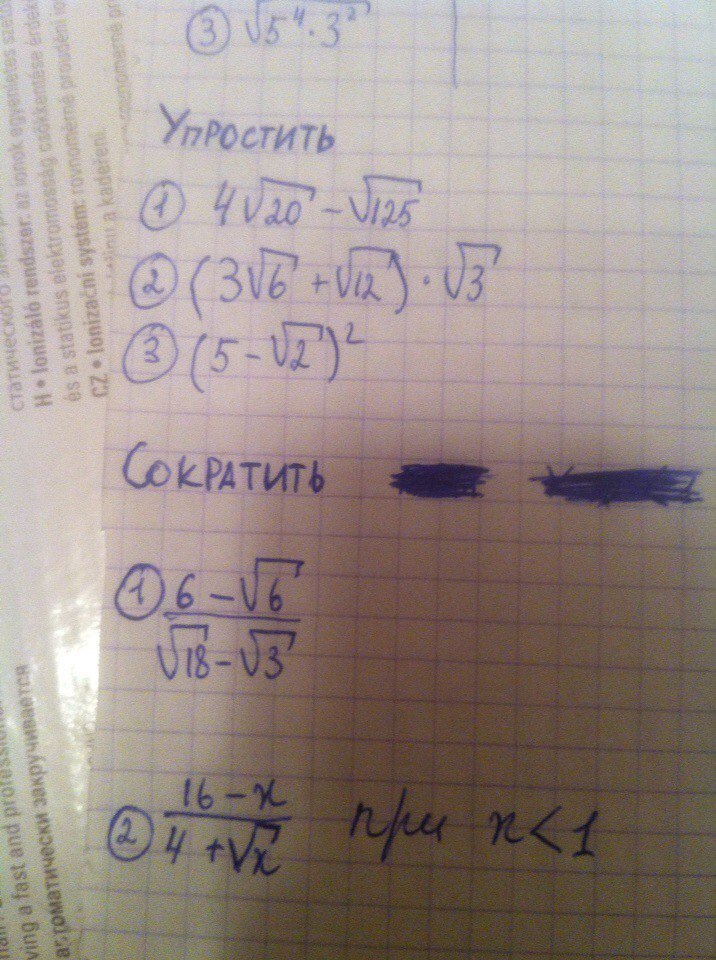 ③ √(5⁴·3²)
Упростить
① 4√20 − √125
② (3√6 + √12) · √3
③ (5 − √2)²
Сократить
① (6 − √6)/(√18 − √3)
② (16 − x)/(4 + √x) при x < 1
статического
H • Ionizáló rendszer: az ionok egyenletes
és a statikus elektromosság csökkentése érdek
CZ • Ionizační systém: rovnoměrné proudění
a kadeření.
and professional
ving a fast and
автоматически закручивается